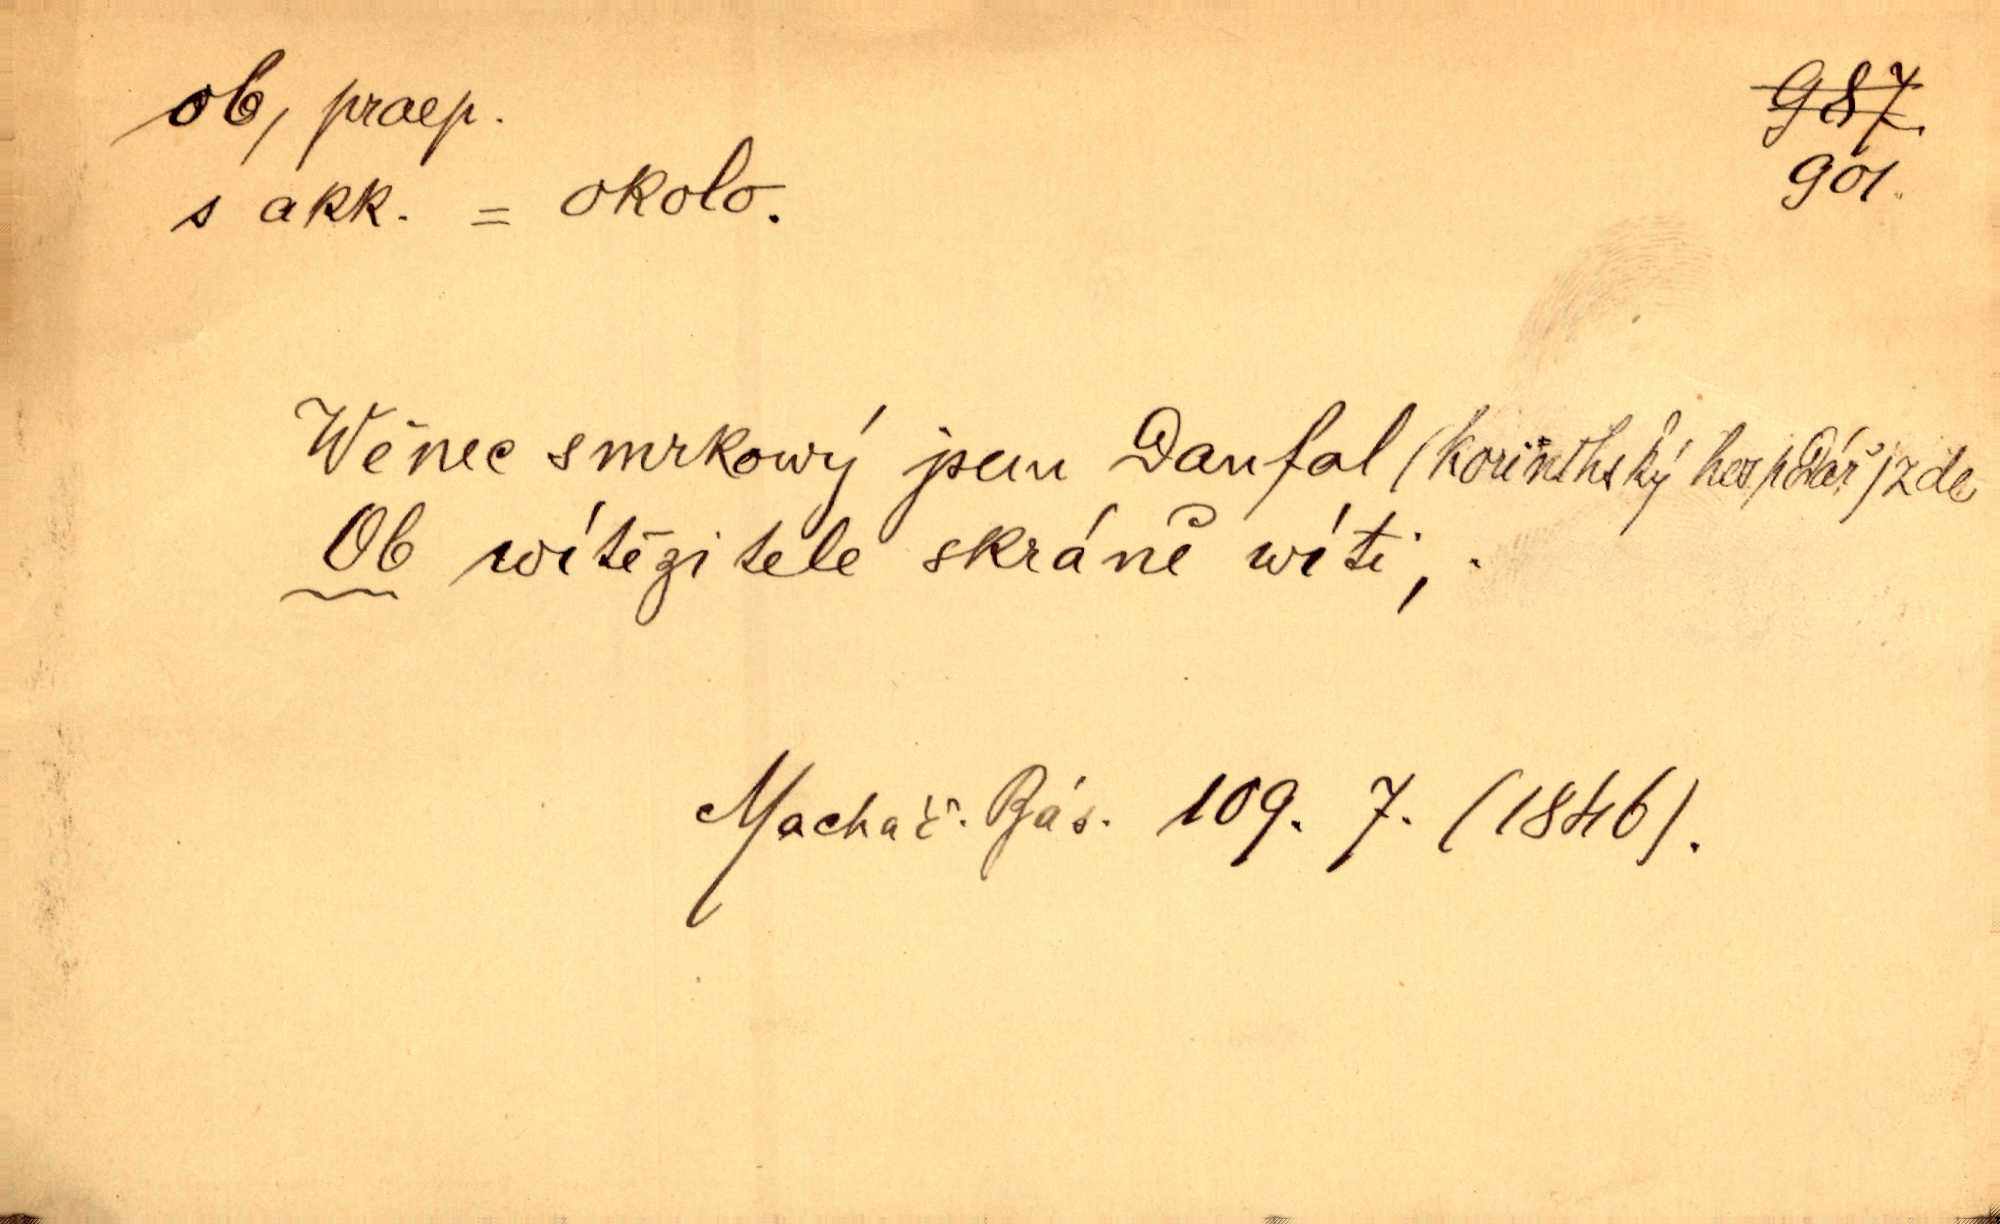 ob, praep.
987
s akk. = okolo.
901.
Wěnec smrkowý jsem Daufal (korinthský hospodář) zde
Ob wítězitele skráně wíti,.
Machač. Bás. 109. 7. (1846).